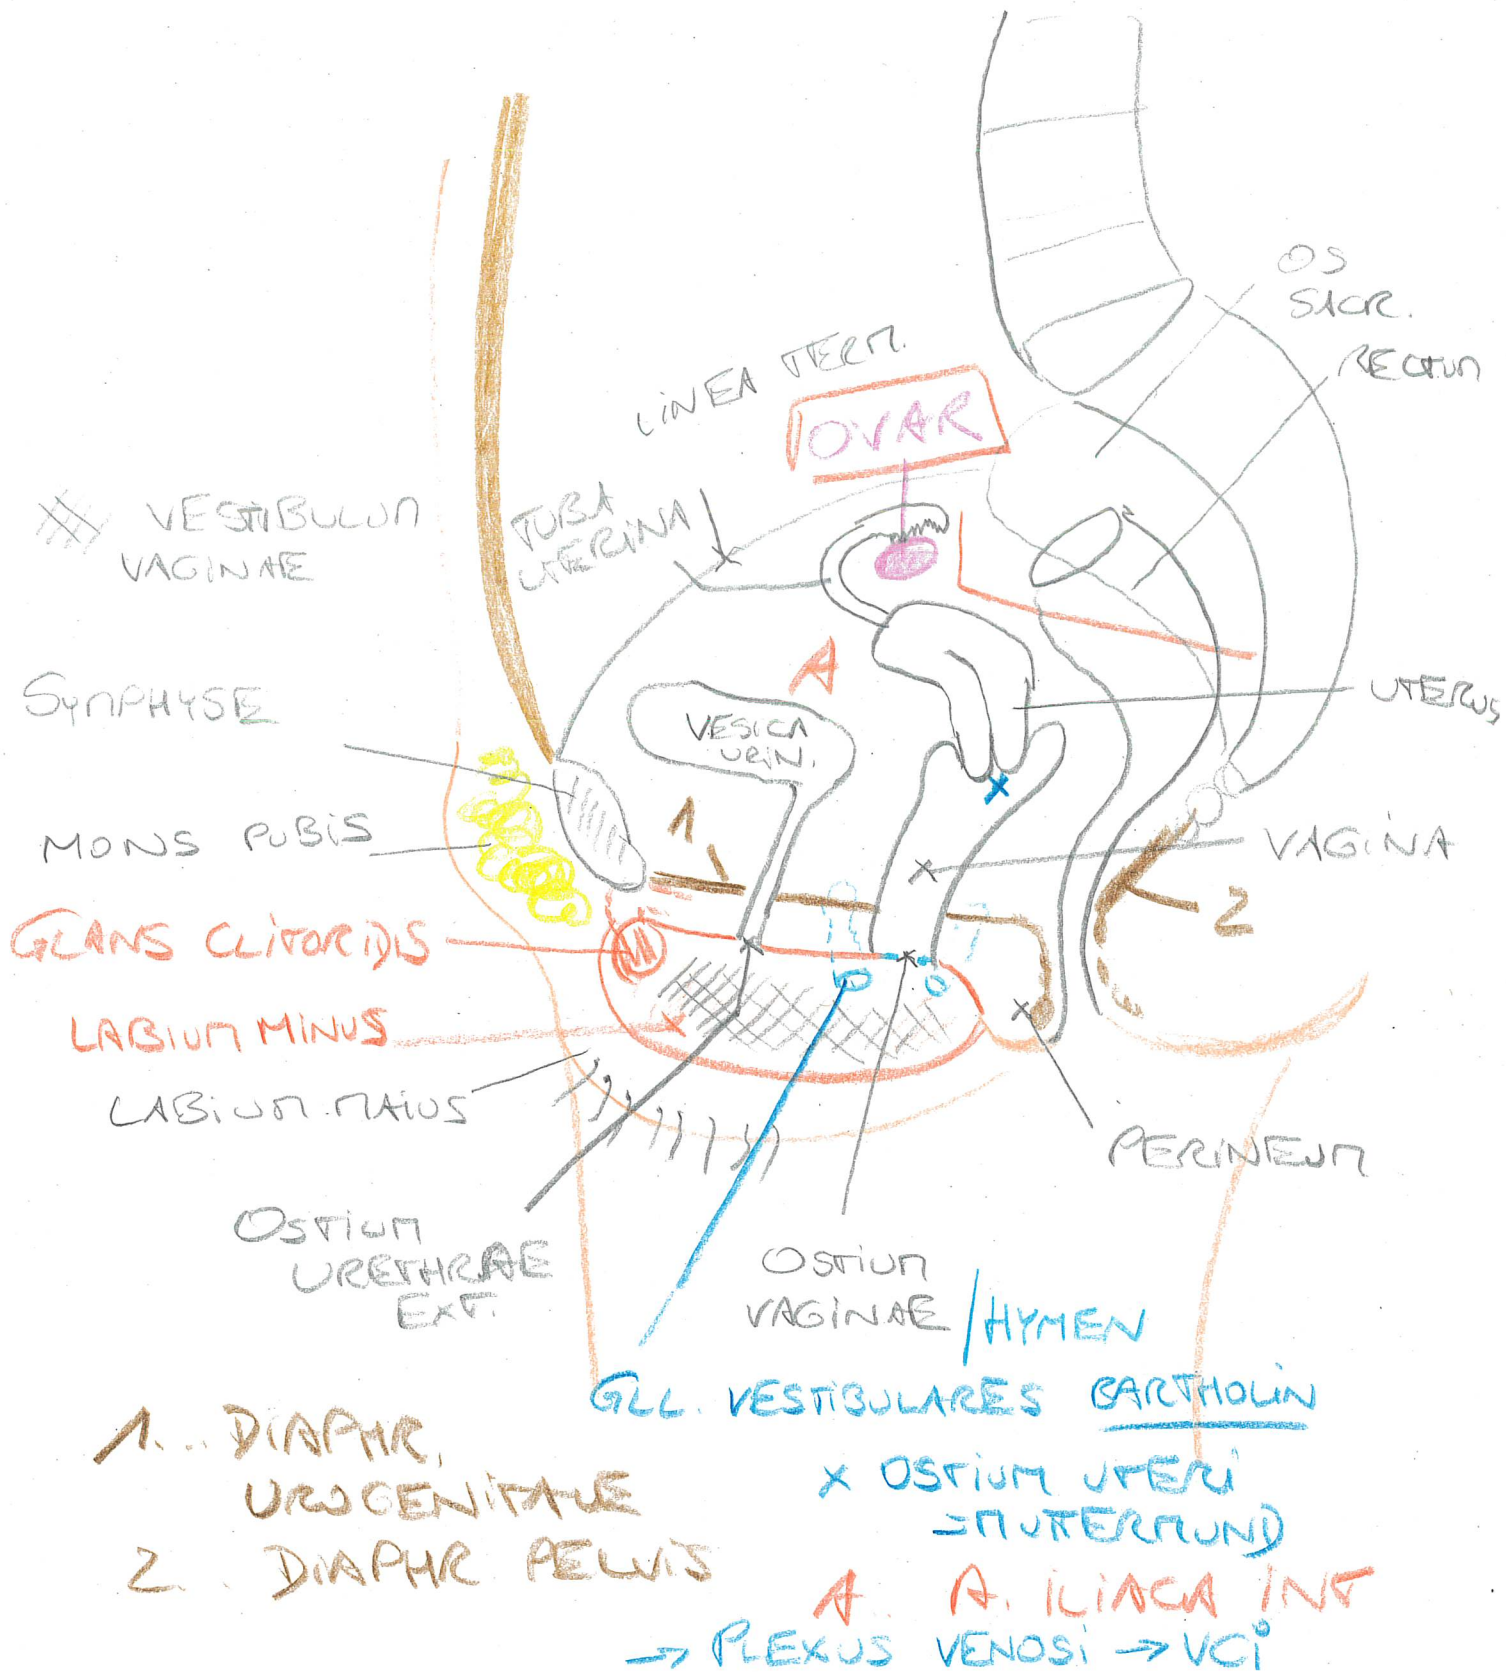 OS
SACR.
RECTUM
LINEA TERM.
OVAR
VESTIBULUM
VAGINAE
TUBA
UTERINA
SYMPHYSE
A
UTERUS
VESICA
URIN.
1
MONS PUBIS
VAGINA
2
GLANS CLITORIDIS
LABIUM MINUS
LABIUM MAIUS
PERINEUM
OSTIUM
URETHRAE
EXT.
OSTIUM
VAGINAE / HYMEN
GLL. VESTIBULARES BARTHOLIN
1... DIAPHR.
UROGENITALE
2.. DIAPHR PELVIS
x OSTIUM UTERI
=MUTTERMUND
A.. A. ILIACA INT
→ PLEXUS VENOSI → VCi